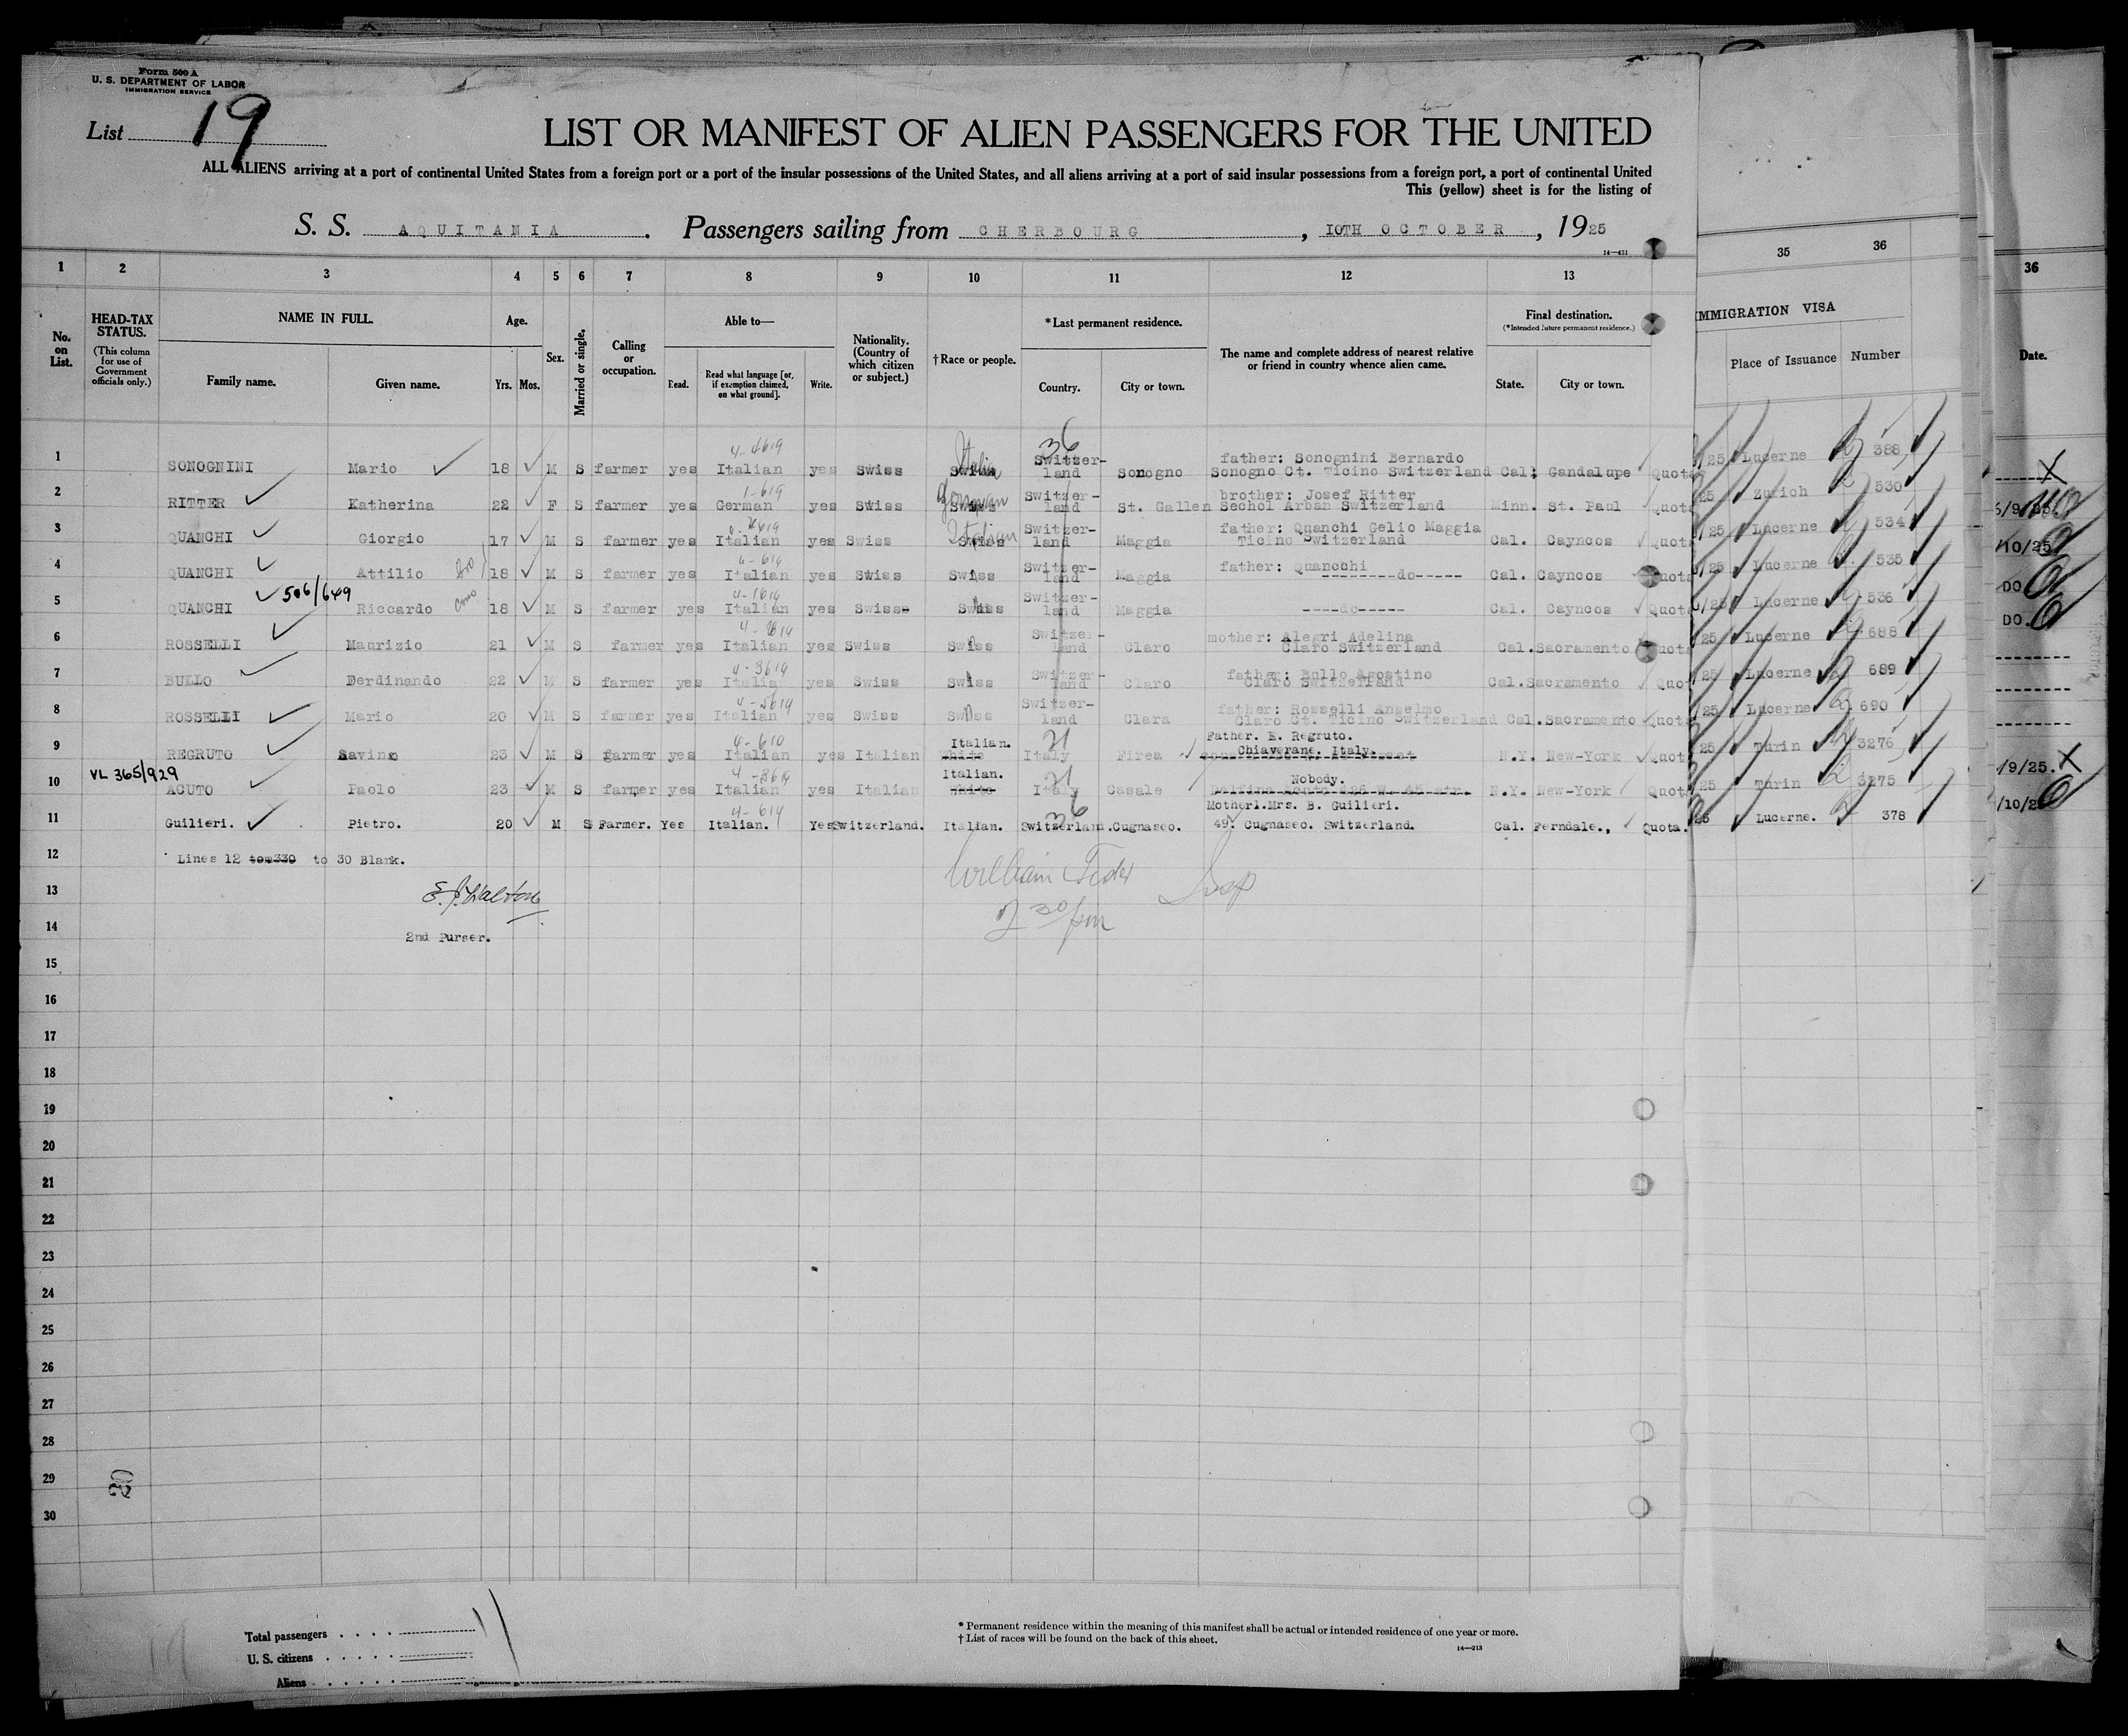 Form 500 A
U. S. DEPARTMENT OF LABOR
IMMIGRATION SERVICE
List 19
LIST OR MANIFEST OF ALIEN PASSENGERS FOR THE UNITED
ALL ALIENS arriving at a port of continental United States from a foreign port or a port of the insular possessions of the United States, and all aliens arriving at a port of said insular possessions from a foreign port, a port of continental United
This (yellow) sheet is for the listing of
S. S. AQUITANIA. Passengers sailing from CHERBOURG, 10TH OCTOBER, 1925
14—431
1 2 3 4 5 6 7 8 9 10 11 12 13 35 36 36
No. on List.
HEAD-TAX STATUS.
(This column for use of Government officials only.)
NAME IN FULL.
Family name. Given name.
Age.
Yrs. Mos.
Sex.
Married or single.
Calling or occupation.
Able to—
Read. Read what language [or, if exemption claimed, on what ground]. Write.
Nationality. (Country of which citizen or subject.)
†Race or people.
*Last permanent residence.
Country. City or town.
The name and complete address of nearest relative or friend in country whence alien came.
Final destination.
(*Intended future permanent residence.)
State. City or town.
IMMIGRATION VISA
Place of Issuance Number
Date.
1 SONOGNINI Mario 18 M S farmer yes Italian yes Swiss Swiss Switzer-land Sonogno father: Sonognini Bernardo Sonogno Ct. Ticino Switzerland Cal; Gandalupe Quota /25 Lucerne 388
2 RITTER Katherina 22 F S farmer yes German yes Swiss German Switzer-land St. Gallen brother: Josef Ritter Sechol Arban Switzerland Minn. St. Paul Quota 25 Zurich 530
3 QUANCHI Giorgio 17 M S farmer yes Italian yes Swiss Swiss Italian Switzer-land Maggia father: Quanchi Celio Maggia Ticino Switzerland Cal. Cayncos Quota /25 Lucerne 534
4 QUANCHI Attilio bro 18 M S farmer yes Italian yes Swiss Swiss Switzer-land Maggia father: Quancchi --------do----- Cal. Cayncos Quota /25 Lucerne 535
5 QUANCHI 506/649 Riccardo 18 M S farmer yes Italian yes Swiss Swiss Switzer-land Maggia ----do----- Cal. Cayncos Quota /25 Lucerne 536
6 ROSSELLI Maurizio 21 M S farmer yes Italian yes Swiss Swiss Switzer-land Claro mother: Alegri Adelina Claro Switzerland Cal. Sacramento Quota 25 Lucerne 688
7 BULLO Ferdinando 22 M S farmer yes Italian yes Swiss Swiss Switzer-land Claro father: Bullo Agostino Claro Switzerland Cal. Sacramento Quot 25 Lucerne 689
8 ROSSELLI Mario 20 M S farmer yes Italian yes Swiss Swiss Switzer-land Clara father: Rosselli Anselmo Claro Ct. Ticino Switzerland Cal. Sacramento Quota 25 Lucerne 690
9 REGRUTO Savino 23 M S farmer yes Italian yes Italian White Italian. Italy Firea Father. E. Regruto. Chiaverane. Italy. N.Y. New-York Quot 25 Turin 3276 /9/25.
VL 365/929
10 ACUTO Paolo 23 M S farmer yes Italian yes Italian White Italian. Italy Casale Nobody. N.Y. New-York Quota 25 Turin 3275
11 Guilieri. Pietro. 20 M S Farmer. Yes Italian. Yes Switzerland. Italian. Switzerland. Cugnasco. Motherl.Mrs. B. Guilieri. 49. Cugnasco. Switzerland. Cal. Ferndale., Quota. 25 Lucerne. 378
12 Lines 12 to 30 Blank.
13 E. J. Walton
14 2nd Purser.
2 30 pm
15
16
17
18
19
20
21
22
23
24
25
26
27
28
29
30
20
Total passengers . . . .
U. S. citizens . . . . .
Aliens . . . . .
* Permanent residence within the meaning of this manifest shall be actual or intended residence of one year or more.
† List of races will be found on the back of this sheet.
14—213